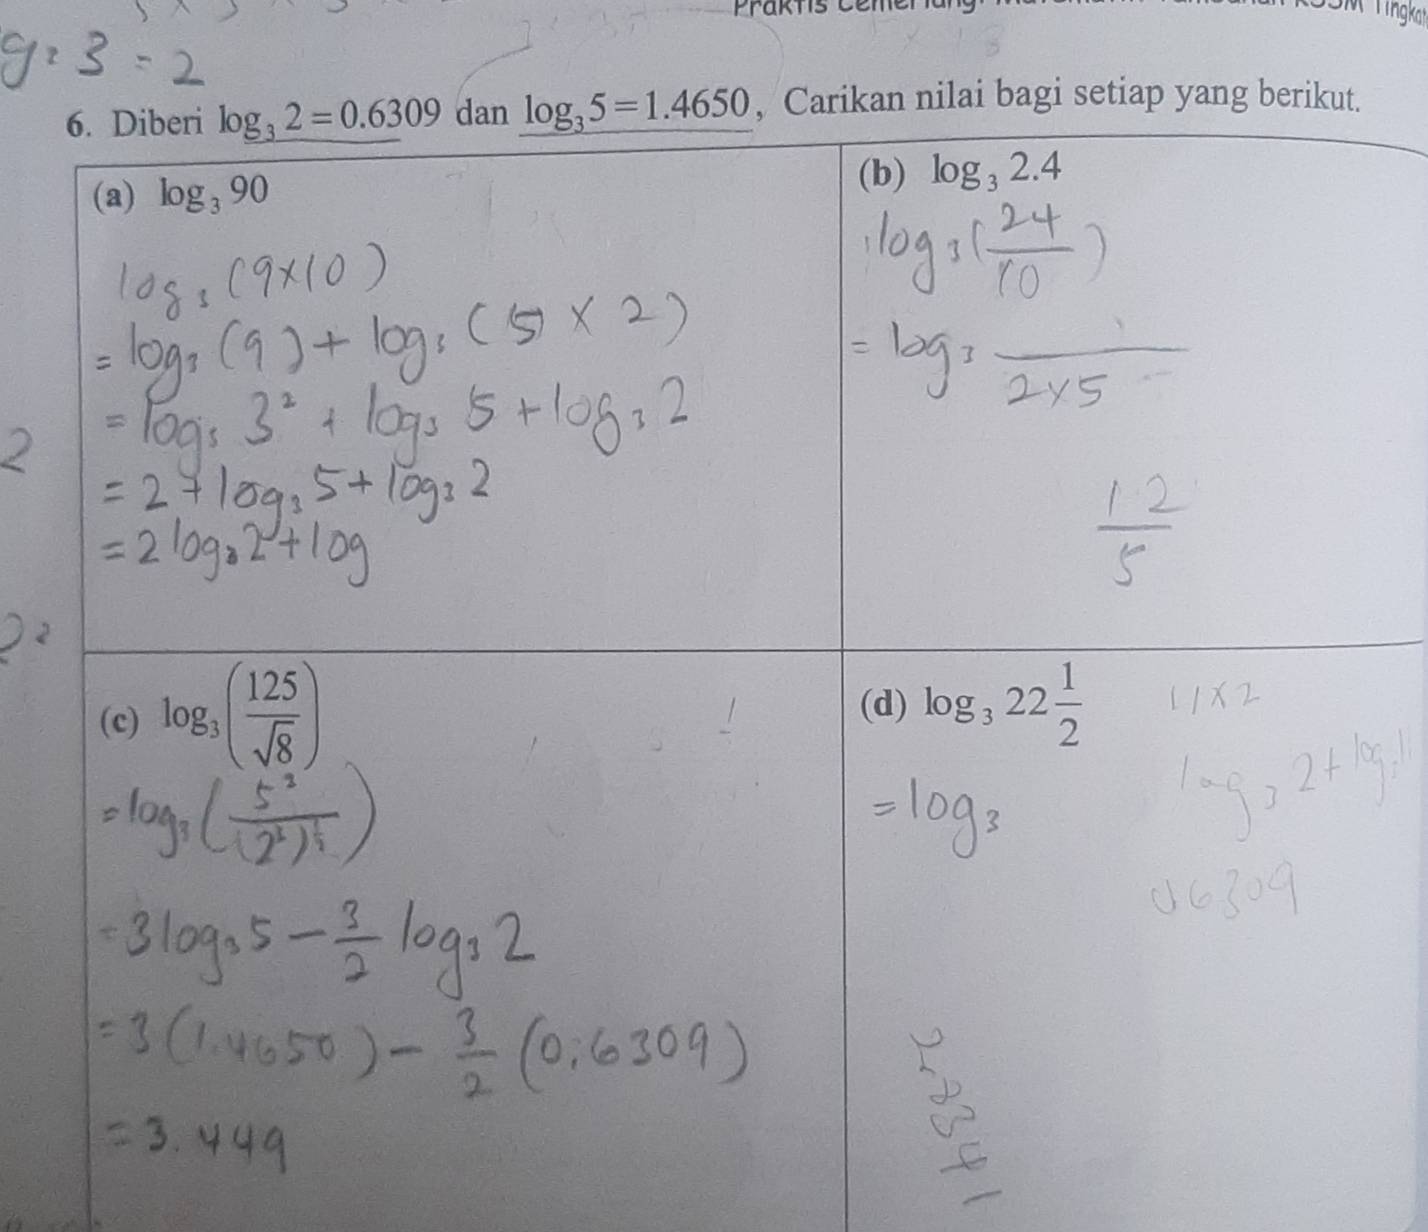 g 2 3 = 2
6. Diberi log₃ 2 = 0.6309 dan log₃ 5 = 1.4650, Carikan nilai bagi setiap yang berikut.
(a) log₃ 90
log₃ (9×10)
= log₃ (9) + log₃ (5 × 2)
= log₃ 3² + log₃ 5 + log₃ 2
= 2 + log₃ 5 + log₃ 2
= 2 log₃ 2 + log
(b) log₃ 2.4
log₃ (24/10)
= log₃ /2×5
12/5
2
(c) log₃ (125/√8)
= log₃ (5³/(2³)^½)
= 3 log₃ 5 − 3/2 log₃ 2
= 3 (1.4650) − 3/2 (0.6309)
= 3.449
(d) log₃ 22 1/2
11×2
= log₃
log₃ 2 + log₃ 11
06309